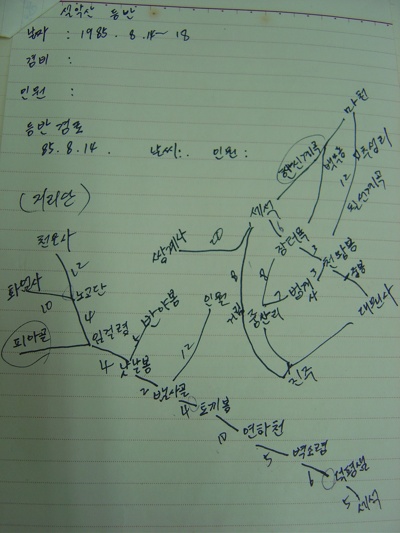 설악산 등반
날자 : 1985. 8. 14~18
장비 :
인원 :
등반 경로
85. 8. 14. 날씨: . 인원 :
(거리단)
천은사
12
화엄사
10
노고단
4
피아골
임걸령
4
날날봉
반야봉
2
뱀사골
12
인원
4
토끼봉
10
연하천
5
벽소령
6
석평샘
5
세석
쌍계사
20
세석
6
장터목
3
천왕봉
중봉
대원사
한신계곡
백무동
마천
12
8
거림
8
중산리
3
법계사
진주